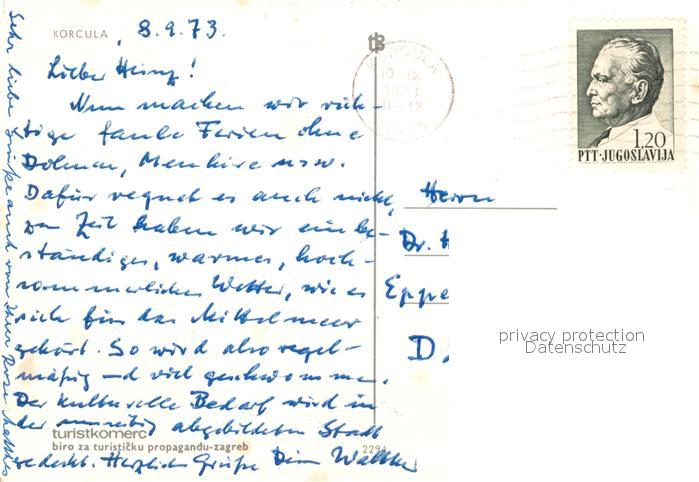 KORCULA, 8.9.73.
Lieber Heinz!
Nun machen wir rich-
tige faule Ferien ohne
Dolmen, Menhire usw.
Dafür regnet es auch nicht,
zur Zeit haben wir ein be-
ständiges, warmes, hoch-
sommerliches Wetter, wie es
sich für das Mittelmeer
gehört. So wird also regel-
mäßig und viel geschwommen.
Der kulturelle Bedarf wird in
der umseitig abgebildeten Stadt
gedeckt. Herzliche Grüße Dein Walther
Sehr liebe Grüße auch von Ihrer
turistkomerc
biro za turističku propagandu-zagreb
KORCULA
10.IX
1973
11-12
1.20
PTT-JUGOSLAVIJA
Herrn
Dr. H
Eppe
D
privacy protection
Datenschutz